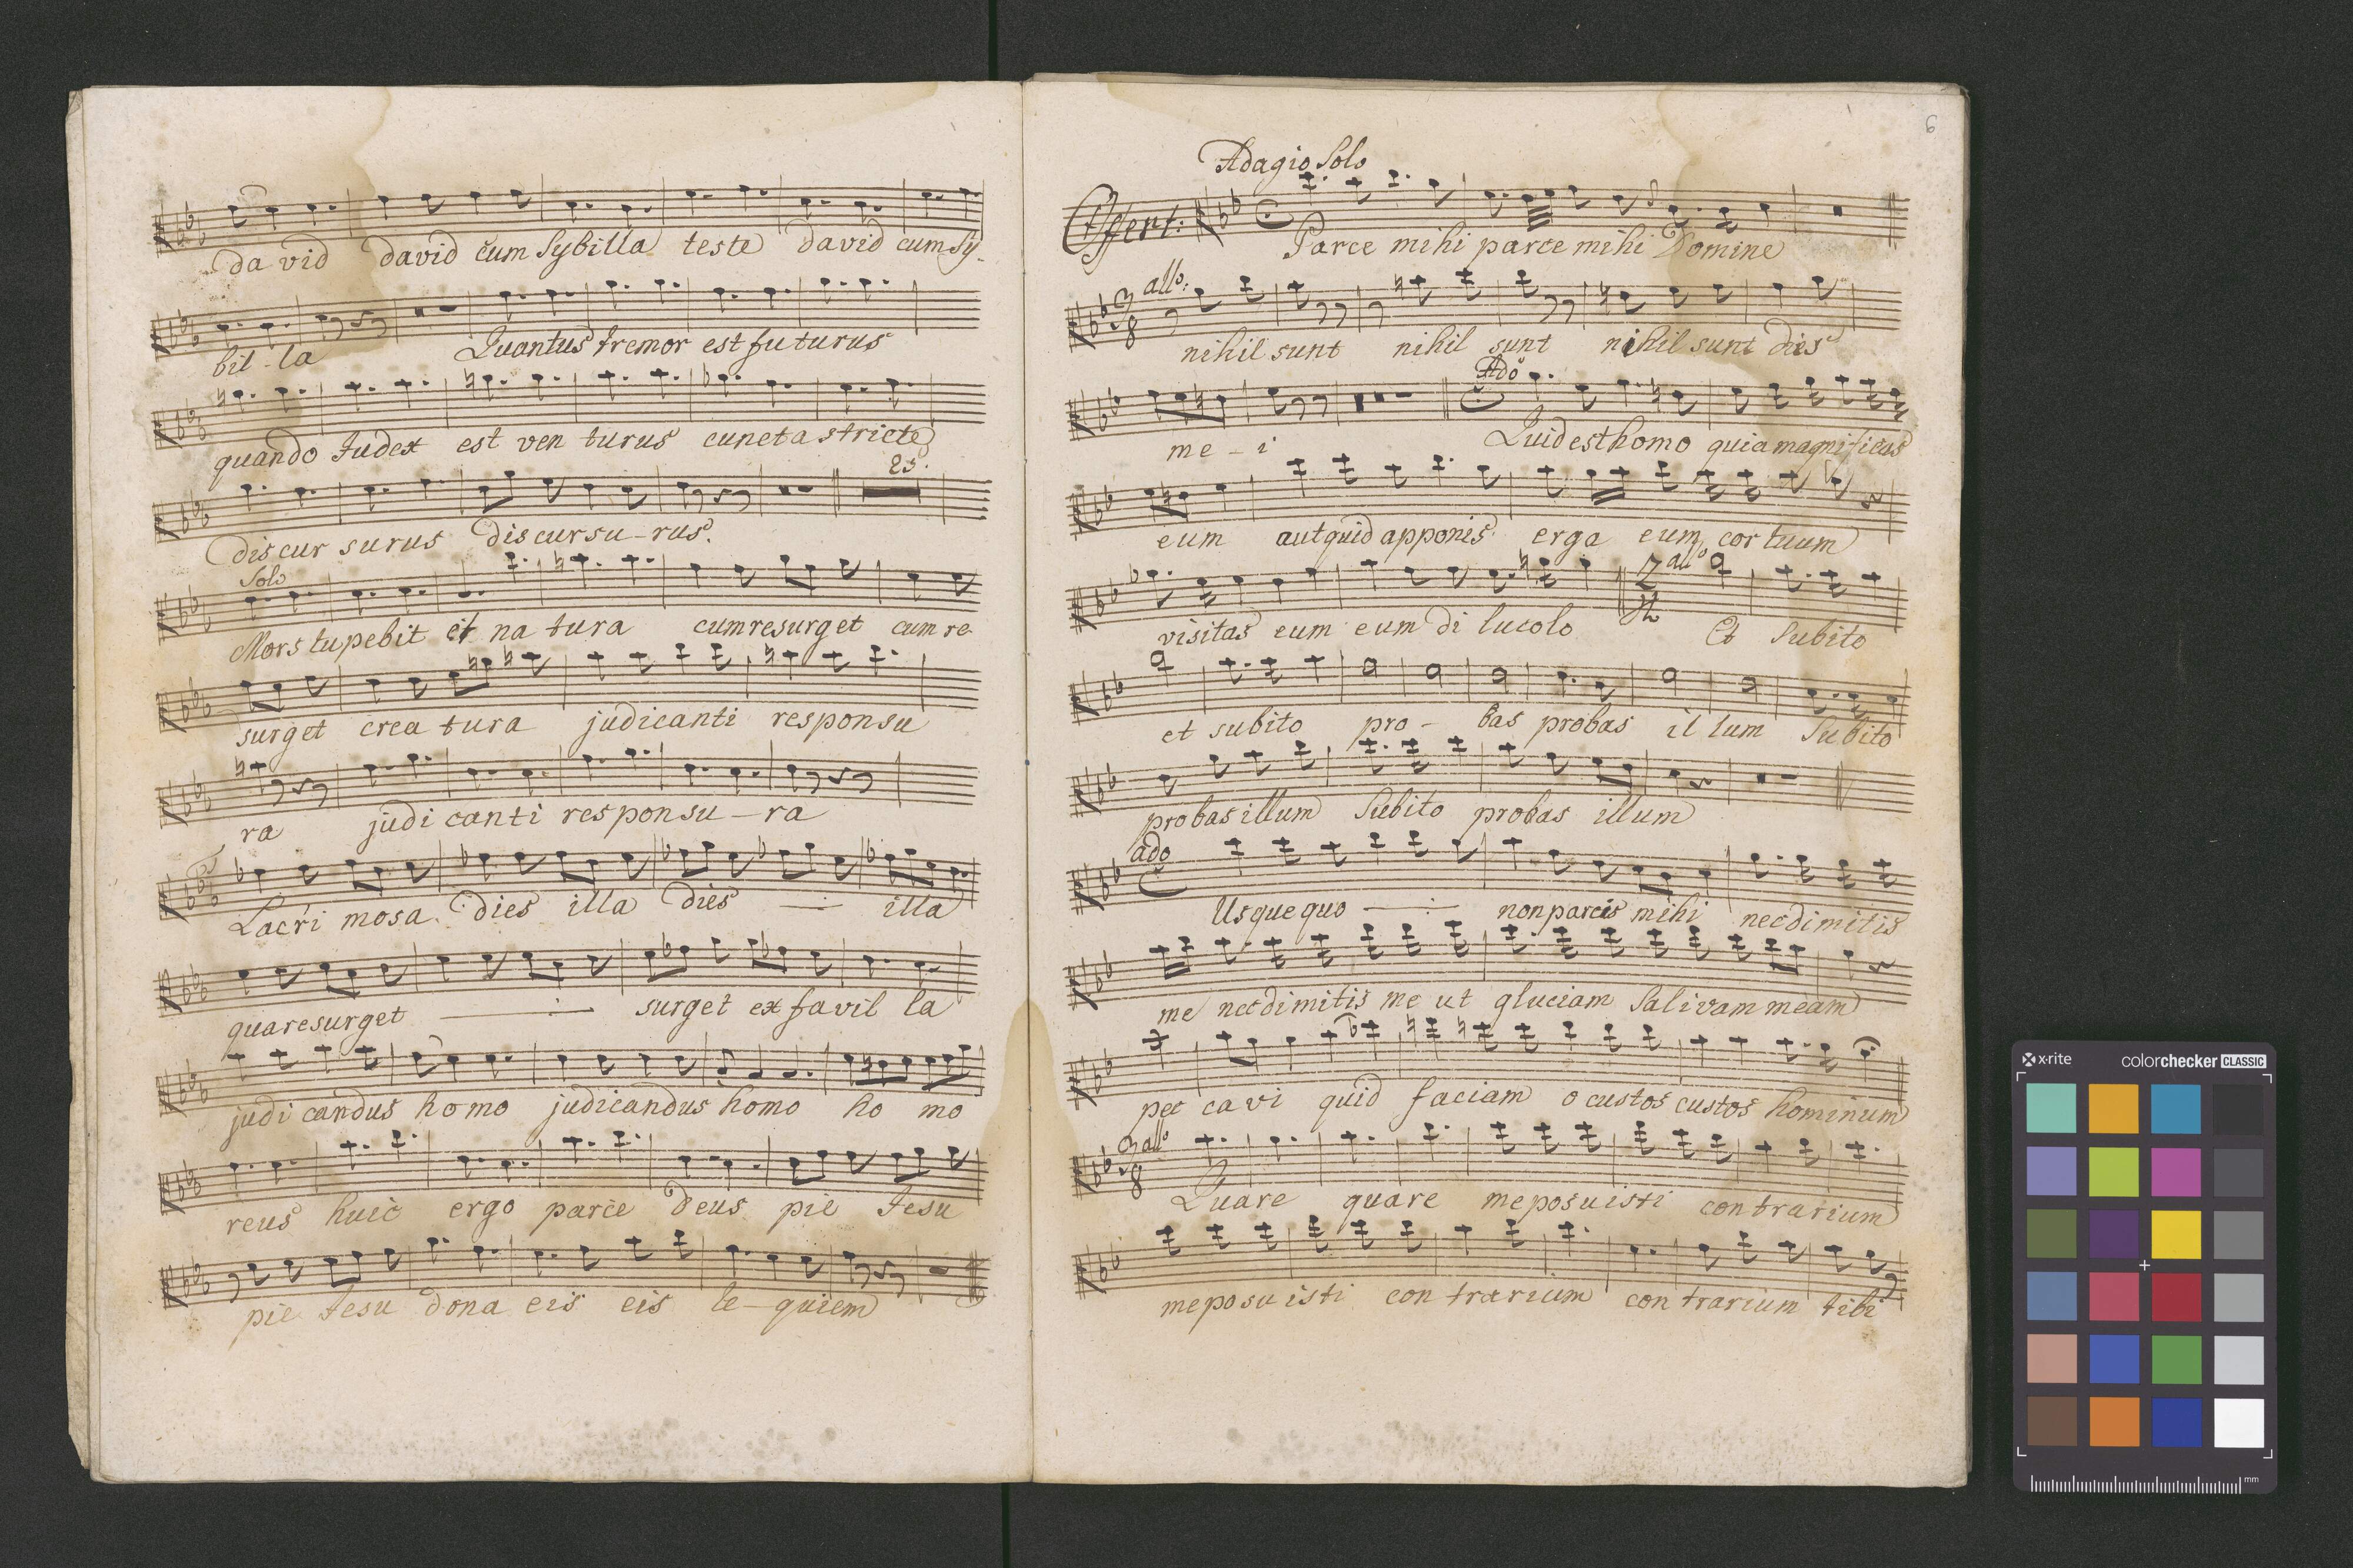 da vid david cum Sybilla teste david cum Sy-
bil-la Quantus tremor est futurus
quando Judex est ven turus cuncta stricte
25.
discur surus discursu-rus.
Solo
Mors stupebit et na tura cum resurget cum re-
surget crea tura judicanti responsu
ra judi canti responsu-ra
Lacri mosa dies illa dies illa
qua resurget surget ex favil la
judi candus homo judicandus homo ho mo
reus huic ergo parce Deus pie Jesu
pie Jesu dona eis eis re-quiem
6
Adagio Solo
Offert: Parce mihi parce mihi Domine
3/8 allo:
nihil sunt nihil sunt nihil sunt dies
Ado
me-i Quid est homo quia magnificas
eum aut quid apponis erga eum cor tuum
allo
visitas eum eum di lucolo Et Subito
et subito pro-bas probas il lum Subito
probas illum Subito probas illum
ado
Usque quo non parcis mihi nec dimitis
me nec dimitis me ut gluciam Salivam meam
pec cavi quid faciam o custos custos hominum
3/8 allo
Quare quare me posuisti contrarium
me posuisti contrarium contrarium tibi
x·rite colorchecker CLASSIC
mm